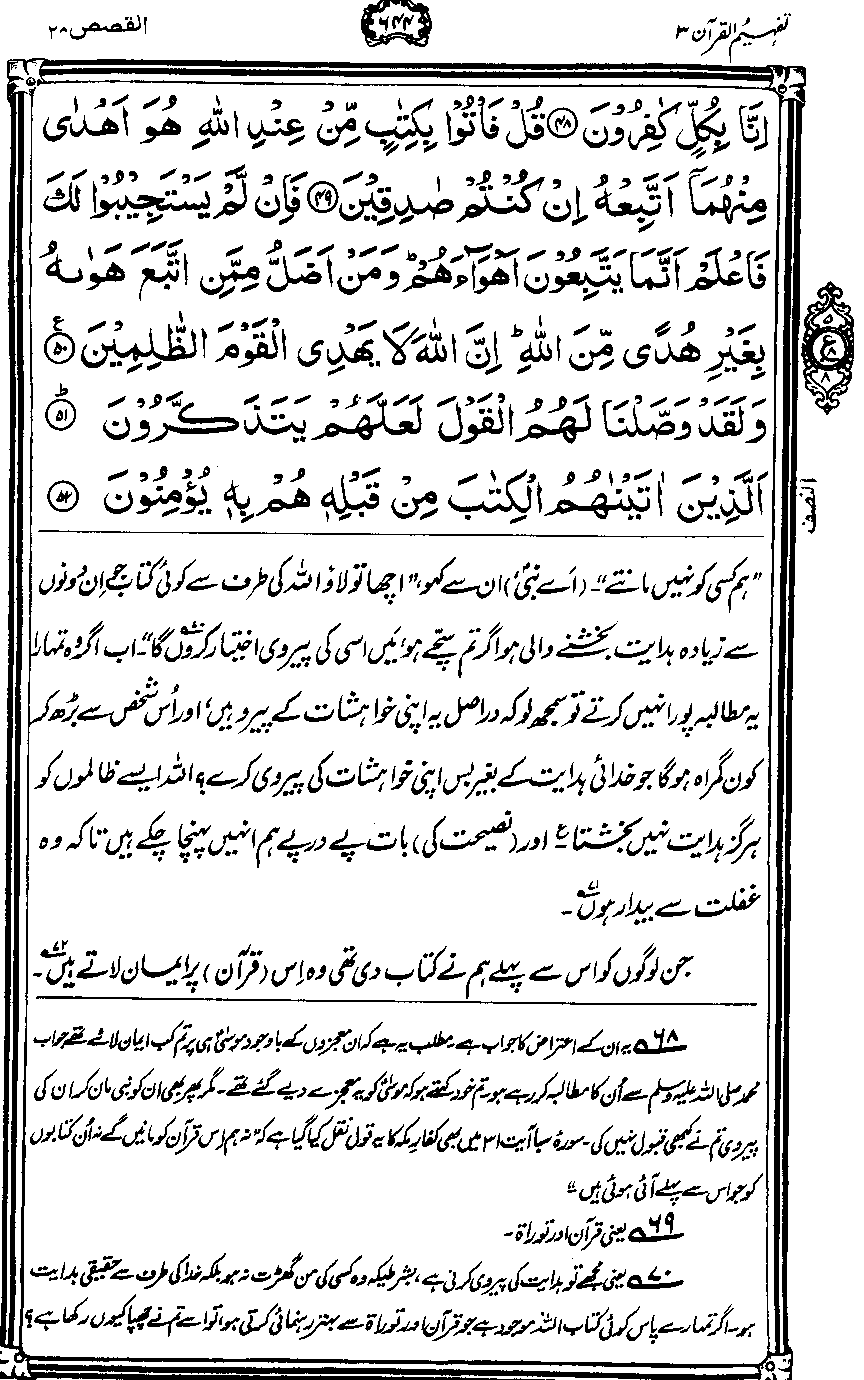 تفہیم القرآن ۳
۶۴۴
القصص ۲۸
اِنَّا بِكُلٍّ كٰفِرُوْنَ ﴿۴۸﴾ قُلْ فَاْتُوْا بِكِتٰبٍ مِّنْ عِنْدِ اللّٰهِ هُوَ اَهْدٰى
مِنْهُمَاۤ اَتَّبِعْهُ اِنْ كُنْتُمْ صٰدِقِيْنَ ﴿۴۹﴾ فَاِنْ لَّمْ يَسْتَجِيْبُوْا لَكَ
فَاعْلَمْ اَنَّمَا يَتَّبِعُوْنَ اَهْوَآءَهُمْ ؕ وَمَنْ اَضَلُّ مِمَّنِ اتَّبَعَ هَوٰىهُ
بِغَيْرِ هُدًى مِّنَ اللّٰهِ ؕ اِنَّ اللّٰهَ لَا يَهْدِى الْقَوْمَ الظّٰلِمِيْنَ ﴿۵۰﴾ ع
وَلَقَدْ وَصَّلْنَا لَهُمُ الْقَوْلَ لَعَلَّهُمْ يَتَذَكَّرُوْنَ ﴿۵۱﴾ ط
اَلَّذِيْنَ اٰتَيْنٰهُمُ الْكِتٰبَ مِنْ قَبْلِهٖ هُمْ بِهٖ يُؤْمِنُوْنَ ﴿۵۲﴾
۵
ع
۸
النصف
”ہم کسی کو نہیں مانتے“۔ (اے نبیؐ) ان سے کہو، ”اچھا تو لاؤ اللہ کی طرف سے کوئی کتاب جو اِن دونوں
سے زیادہ ہدایت بخشنے والی ہو اگر تم سچے ہو، میں اسی کی پیروی اختیار کروں گا۷۰“۔ اب اگر وہ تمہارا
یہ مطالبہ پورا نہیں کرتے تو سمجھ لو کہ دراصل یہ اپنی خواہشات کے پیرو ہیں، اور اُس شخص سے بڑھ کر
کون گمراہ ہوگا جو خدائی ہدایت کے بغیر بس اپنی خواہشات کی پیروی کرے؟ اللہ ایسے ظالموں کو
ہرگز ہدایت نہیں بخشتا ع اور (نصیحت کی) بات پے در پے ہم انہیں پہنچا چکے ہیں تاکہ وہ
غفلت سے بیدار ہوں۷۱۔
جن لوگوں کو اس سے پہلے ہم نے کتاب دی تھی وہ اِس (قرآن) پر ایمان لاتے ہیں۷۲۔
۶۸ یہ ان کے اعتراض کا جواب ہے۔ مطلب یہ ہے کہ ان معجزوں کے باوجود موسیٰؑ ہی پر تم کب ایمان لائے تھے جواب
محمد صلی اللہ علیہ وسلم سے اُن کا مطالبہ کر رہے ہو۔ تم خود کہتے ہو کہ موسیٰؑ کو یہ معجزے دیے گئے تھے۔ مگر پھر بھی ان کو نبی مان کر ان کی
پیروی تم نے کبھی قبول نہیں کی۔ سورۂ سبا آیت ۳۱ میں بھی کفارِ مکہ کا یہ قول نقل کیا گیا ہے کہ ”نہ ہم اِس قرآن کو مانیں گے نہ اُن کتابوں
کو جو اس سے پہلے آئی ہوئی ہیں“
۶۹ یعنی قرآن اور توراۃ۔
۷۰ یعنی مجھے تو ہدایت کی پیروی کرنی ہے، بشرطیکہ وہ کسی کی من گھڑت نہ ہو بلکہ خدا کی طرف سے حقیقی ہدایت
ہو۔ اگر تمہارے پاس کوئی کتاب اللہ موجود ہے جو قرآن اور توراۃ سے بہتر رہنمائی کرتی ہو، تو اسے تم نے چھپا کیوں رکھا ہے؟